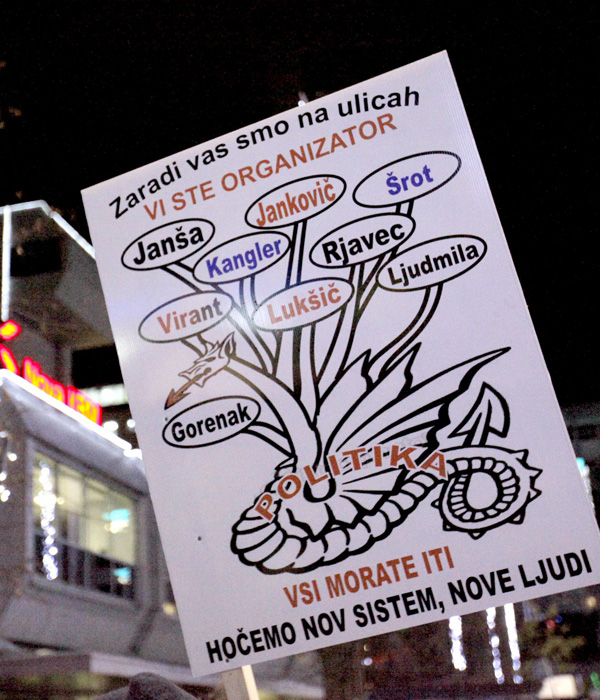 Zaradi vas smo na ulicah
VI STE ORGANIZATOR
Janša
Kangler
Jankovič
Šrot
Rjavec
Ljudmila
Virant
Lukšič
Gorenak
POLITIKA
VSI MORATE ITI
HOČEMO NOV SISTEM, NOVE LJUDI